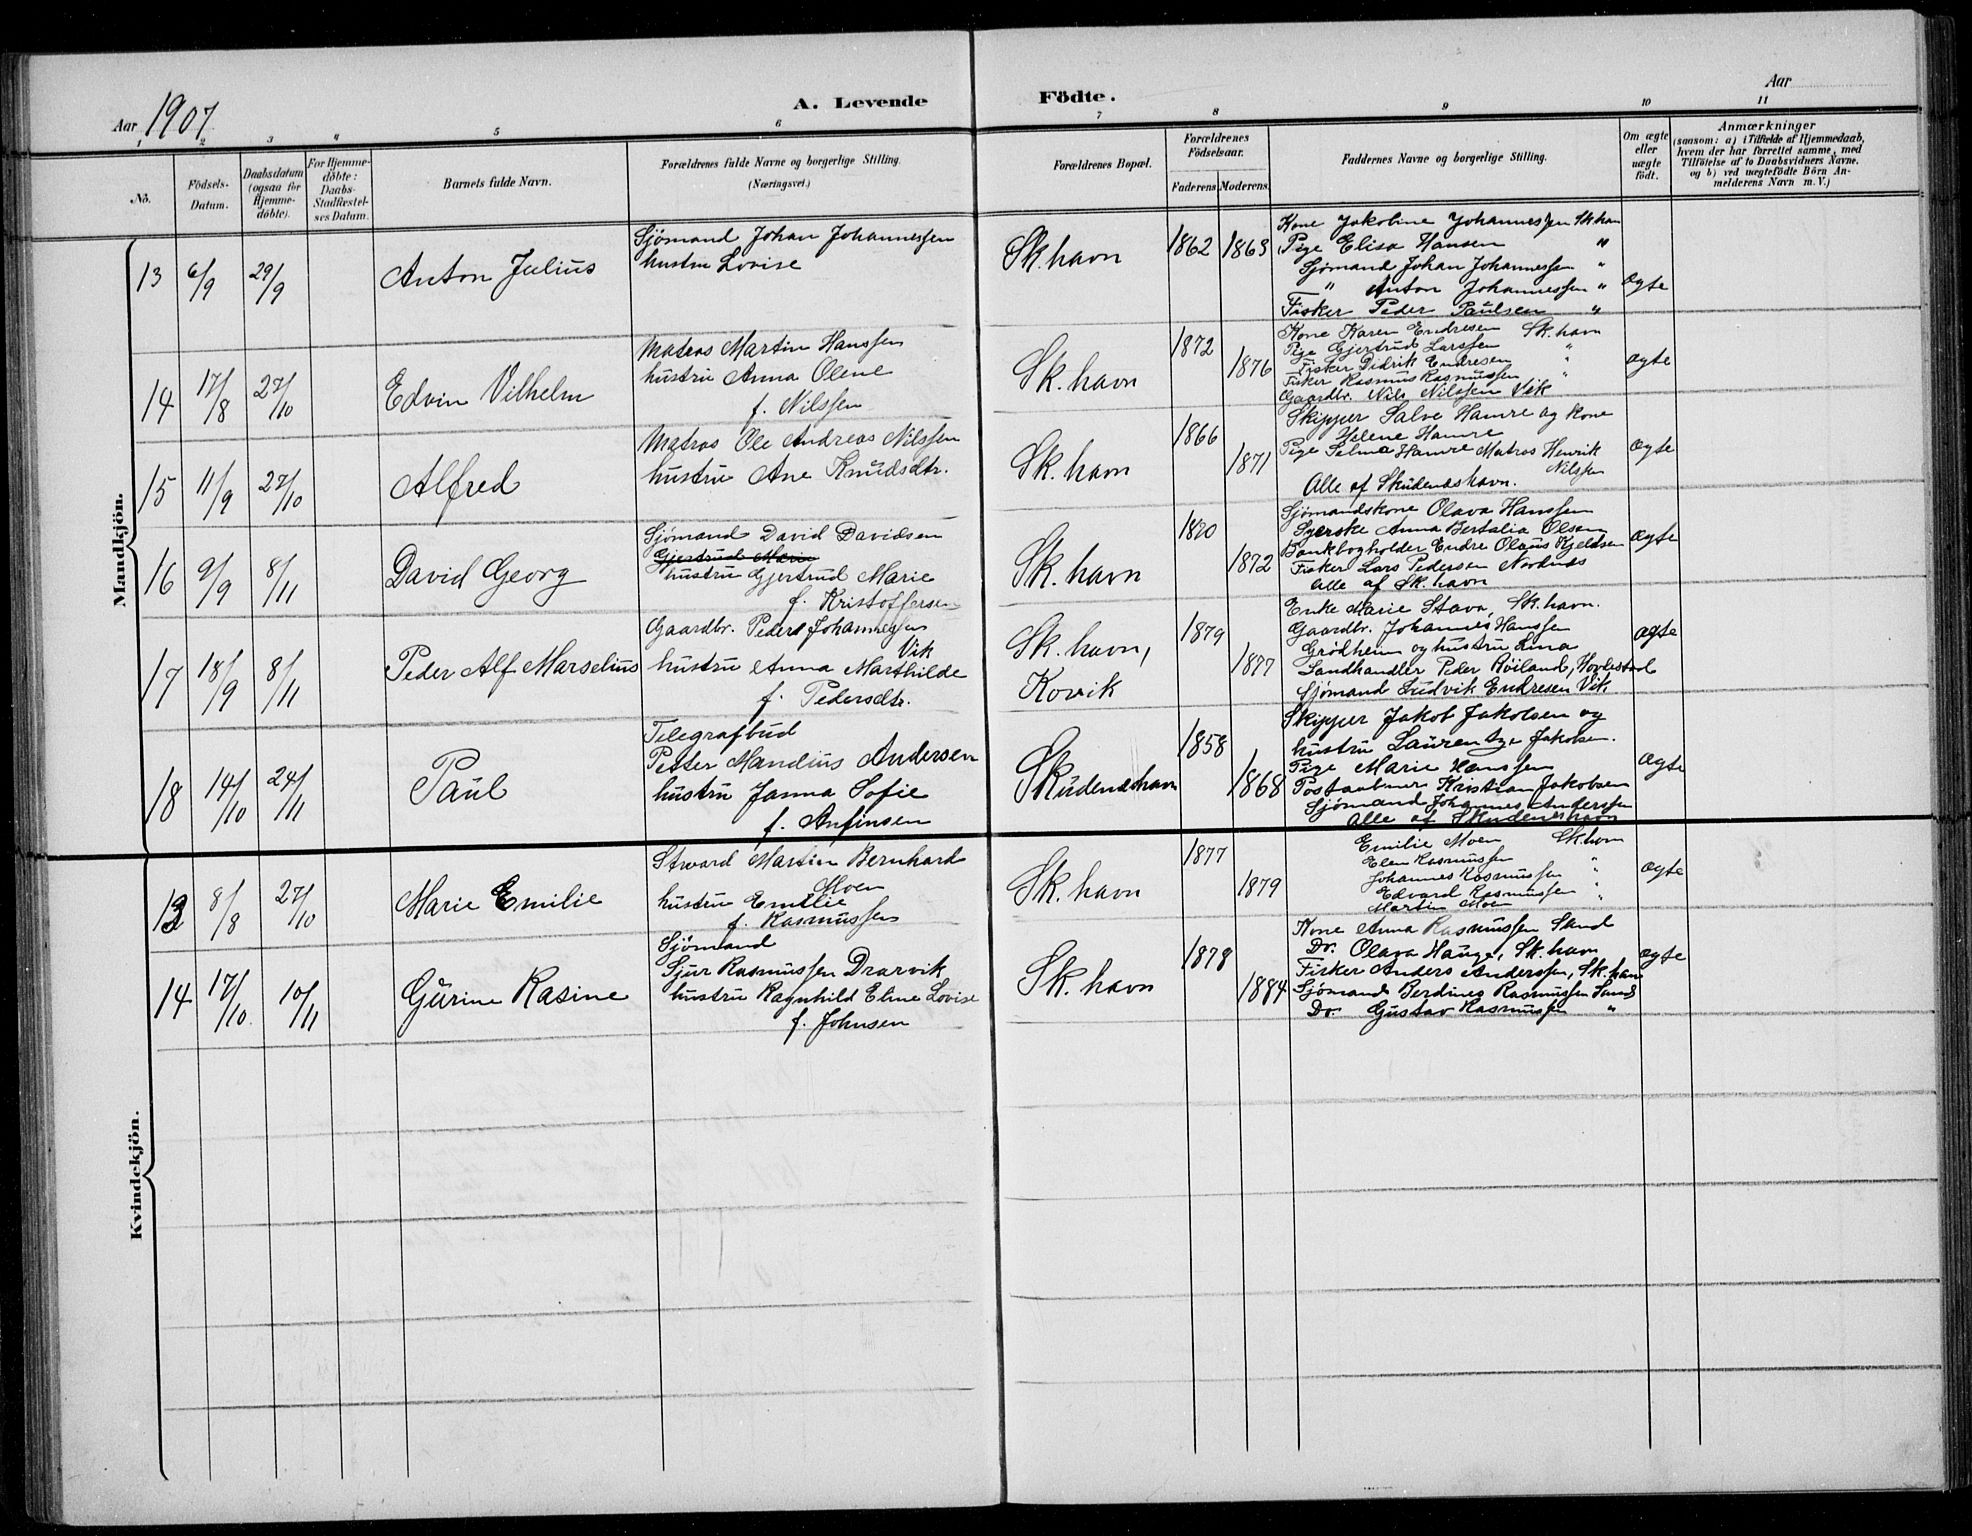 Aar 1907
A. Levende Födte.
Aar
1 2 3 4 5 6 7 8 9 10 11
No.
Födsels-Datum.
Daabsdatum (ogsaa for Hjemme-döbte).
For Hjemme-döbte: Daabs-Stadfæstel-ses Datum.
Barnets fulde Navn.
Forældrenes fulde Navne og borgerlige Stilling.
(Næringsvei.)
Forældrenes Bopæl.
Forældrenes Födselsaar.
Faderens Moderens.
Faddernes Navne og borgerlige Stilling.
Om ægte eller uægte födt.
Anmærkninger
(saasom: a) i Tilfælde af Hjemmedaab,
hvem der har forrettet samme, med
Tilföielse af to Daabsvidners Navne.
og b) ved uægtefödte Börn An-
melderens Navn m. V.)
Mandkjön.
13 6/9 29/9 Anton Julius
Sjømand Johan Johannessen
hustru Lovise
Sk. havn 1862 1863
Kone Jakoline Johannessen Sk.havn
Pige Elisa Hansen "
Sjømand Johan Johannessen "
" Anton Johannessen "
Fisker Peder Paulsen "
ægte
14 17/8 27/10 Edvin Vilhelm
Matros Martin Hanssen
hustru Anna Olene
f. Nilssen
Sk. havn 1872 1876
Kone Karen Endresen Sk. havn
Pige Gjertrud Larssen "
Fisker Didrik Endresen "
Fisker Rasmus Rasmussen "
Gaardbr. Nils Nilssen Vik
ægte
15 11/9 27/10 Alfred
Matros Ole Andreas Nilssen
hustru Ane Knudsdtr.
Sk. havn 1866 1871
Skipper Salve Hamre og Kone
Helene Hamre
Pige Selma Hamre Matros Henrik
Nilssen
Alle af Skudeneshavn.
ægte
16 9/9 8/11 David Georg
Sjømand David Davidsen
Gjertrud Marie
hustru Gjertrud Marie
f. Kristoffersen
Sk. havn 1870 1872
Sjømandskone Olava Hanssen
Syerske Anna Bertalia Olsen
Bankbogholder Endre Olaus Kjeldsen
Fisker Lars Pedersen Nordnes
Alle af Sk. havn
ægte
17 18/9 8/11 Peder Alf Marselius
Gaardbr. Peder Johannessen
Vik
hustru Anna Marthilde
f. Pedersdtr.
Sk. havn,
Kovik
1879 1877
Enke Marie Stava, Sk. havn.
Gaardbr. Johannes Hanssen
Grødheim og hustru Lina
Landhandler Peder Røiland, Hovlestad
Sjømand Ludvik Endresen Vik
ægte
18 14/10 24/11 Paul
Telegrafbud
Petter Mandius Andersen
hustru Janna Sofie
f. Anfinsen
Skudeneshavn 1858 1868
Skipper Jakob Jakobsen og
hustru Laurentze Jakobsen.
Pige Marie Hanssen
Postaabner Kristian Jakobsen
Sjømand Johannes Anderssen
Alle af Skudeneshavn
ægte
Kvindekjön.
13 8/8 27/10 Marie Emilie
Stward Martin Bernhard
Moen
hustru Emilie
f. Rasmussen
Sk. havn 1877 1879
Emilie Moen Sk. havn
Elen Rasmussen "
Johannes Rasmussen "
Edvard Rasmussen "
Martin Moen "
ægte
14 17/10 10/11 Gurine Rasine
Sjømand
Sjur Rasmussen Drarvik
hustru Ragnhild Eline Lovise
f. Johnsen
Sk. havn 1878 1884
Kone Anna Rasmussen Sand
Do. Olava Hauge, Sk. havn
Fisker Anders Anderssen, Sk. havn
Sjømand Berdines Rasmussen Sand
Do. Gustav Rasmussen "
ægte